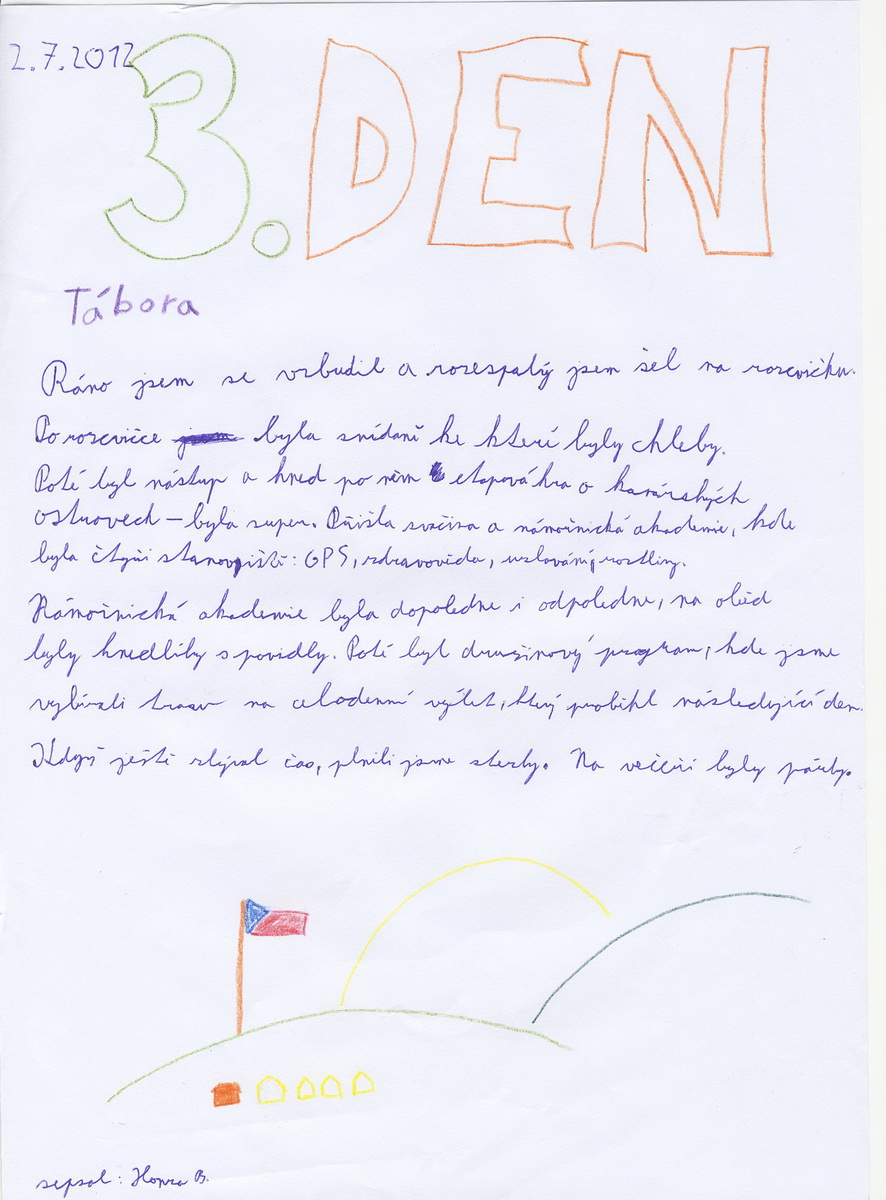 2.7.2012
3. DEN
Tábora
Ráno jsem se vzbudil a rozespalý jsem šel na rozcvičku.
Po rozcvičce byla snídaně ke které byly chleby.
Poté byl nástup a hned po něm etapová hra o kanárských
ostrovech – byla super. Přišla svačina a námořnická akademie, kde
byla čtyři stanoviště: GPS, zdravověda, uzlování, rostliny.
Námořnická akademie byla dopoledne i odpoledne, na oběd
byly knedlíky s povidly. Poté byl družinový program, kde jsme
vybírali trasu na celodenní výlet, který proběhl následující den.
Když ještě zbýval čas, plnili jsme stezky. Na večeři byly párky.
sepsal: Honza B.